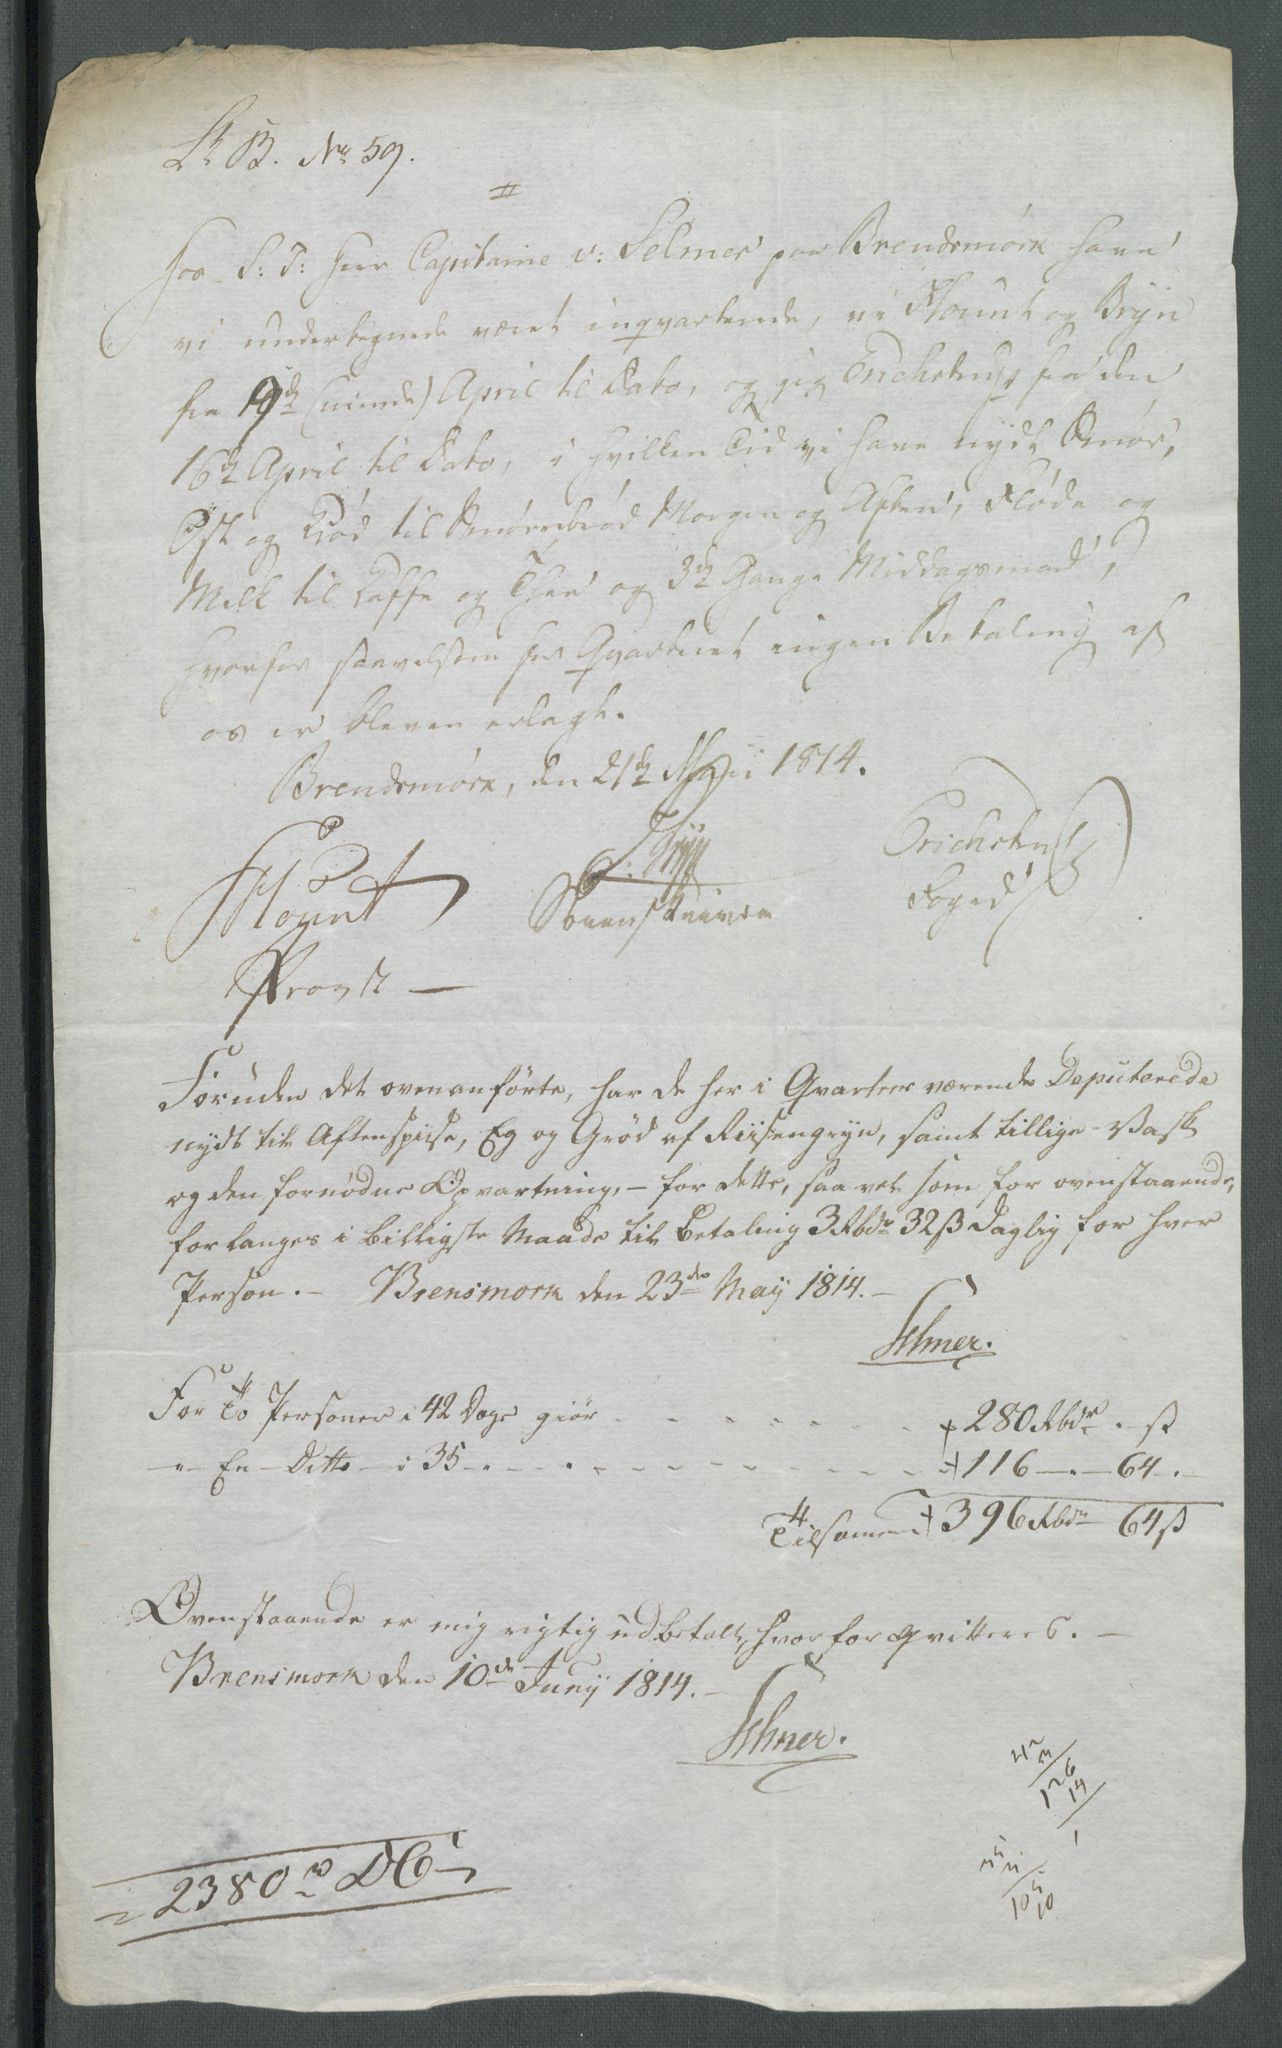 Lt B. No 59.
Hos S: T: Herr Capitaine v: Selmer paa Brendsmörk have
vi undertegnede været inqvarterede, vi Hount og Bryn
fra 9de (niende) April til Dato, og jeg Erichstrup fra den
16de April til Dato, i hvilken Tid vi have nydt Smör,
Ost og Kiöd til Smörrebröd Morgen og Aften, Flöde og
Melk til Kaffe og Thee og 3de Gange Middagsmad,
hvorfor saavelsom for Qvarteret ingen Betaling af
os er bleven erlagt.
Brendsmörk, den 21de Maii 1814.
Hount Bryn Erichstrup
Sorenskriver Foged
Provst
Foruden det ovenanförte, har de her i Qvarteer værende Deputerede
nydt til Aftenspiise, Eg og Gröd af Riisengryn, samt tillige Vask
og den fornödne Opvartning, - for dette, saa vel som for ovenstaaende,
forlanges i billigste Maade til Betaling 3 Rbdr 32 ß Daglig for hver
Person. - Brensmork den 23de Maij 1814. -
Selmer.
For To Personer i 42 Dage giör 280 Rbdr . ß
" En Ditto i 35 116 . 64 .
Tilsamen 396 Rbdr 64 ß
Ovenstaaende er mig rigtig udbetalt, hvorfor qvitteres. -
Brensmork den 10de Junij 1814. -
Selmer.
42
3
126
14
35
3
105
10
2380